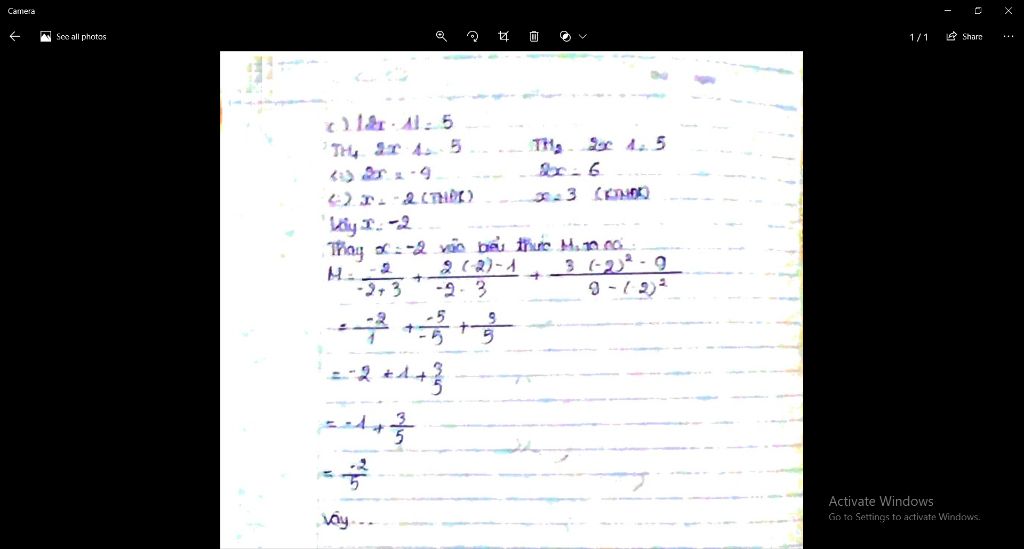 Camera
See all photos
1 / 1
Share
c) |2x - 1| = 5
TH₁ 2x 1 = 5 TH₂ 2x 1 = 5
(=) 2x = -4 2x = 6
(=) x = -2 (TMĐK) x = 3 (KTMĐK)
Vậy x = -2
Thay x = -2 vào biểu thức M, ta có:
M = -2/-2+3 + 2(-2)-1/-2-3 + 3-(-2)²-9/9-(-2)²
= -2/1 + -5/-5 + 3/5
= -2 + 1 + 3/5
= -1 + 3/5
= -2/5
Vậy...
Activate Windows
Go to Settings to activate Windows.